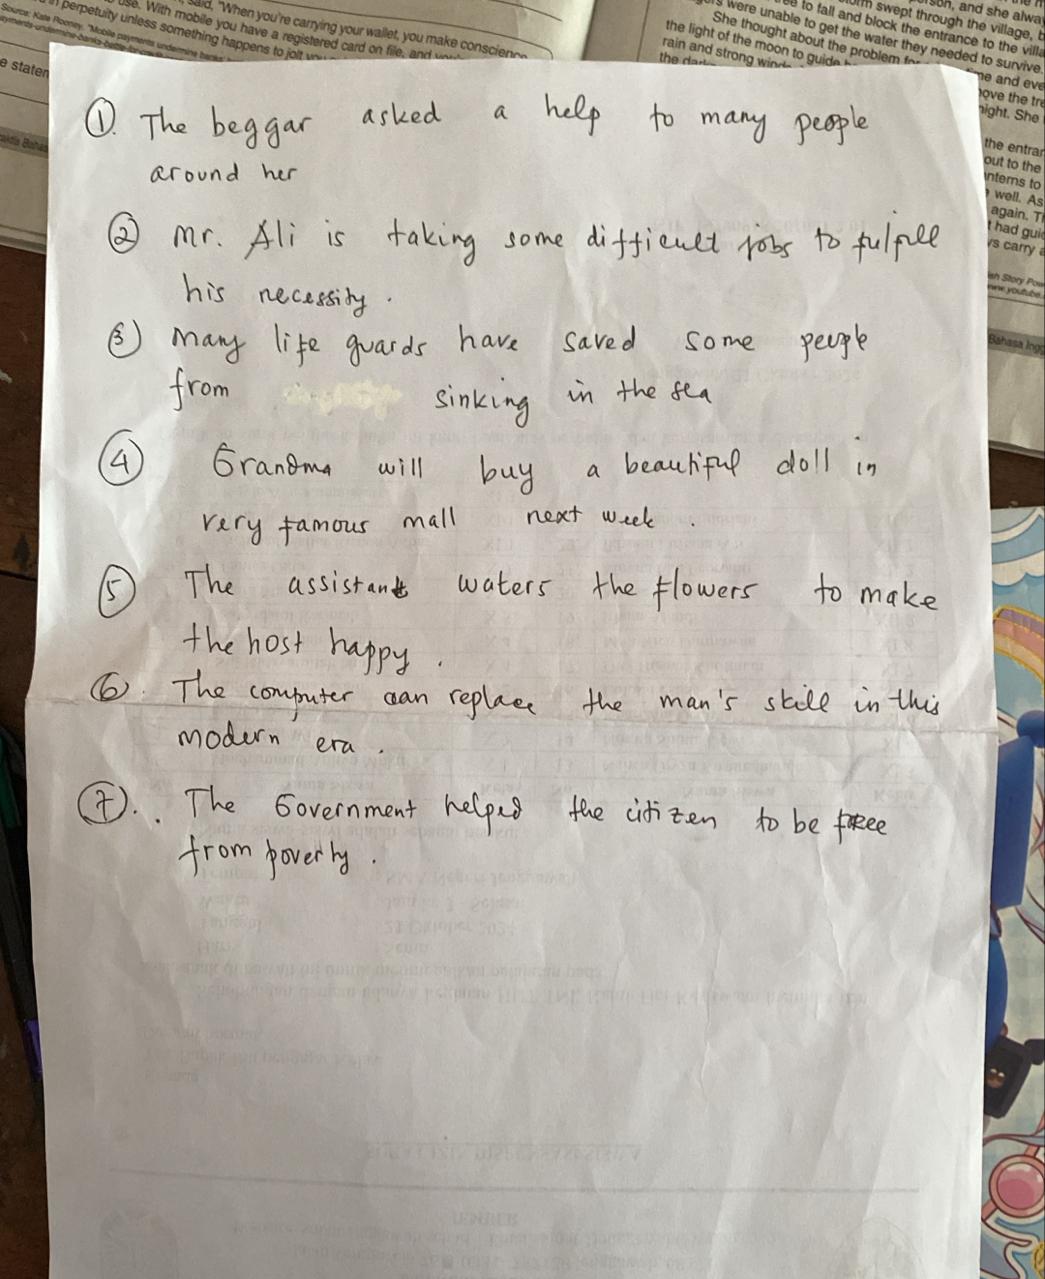 said, "When you're carrying your wallet, you make conscience
use. With mobile you have a registered card on file, and
in perpetuity unless something happens to jolt you
Source: Kate Rooney, "Mobile payments undermine banks'
e staten
swept through the village, b
to fall and block the entrance to the villa
were unable to get the water they needed to survive.
She thought about the problem for
the light of the moon to guide
rain and strong winds
the entrar
out to the
well. As
again. Th
had guid
carry a
Bahasa Ingg
① The beggar asked a help to many people
around her
② Mr. Ali is taking some difficult jobs to fulfill
his necessity .
③ Many life guards have saved some people
from sinking in the sea
④ Grandma will buy a beautiful doll in
very famous mall next week .
⑤ The assistant waters the flowers to make
the host happy .
⑥ . The computer can replace the man's skill in this
modern era .
⑦ . The Government helped the citizen to be free
from poverty .